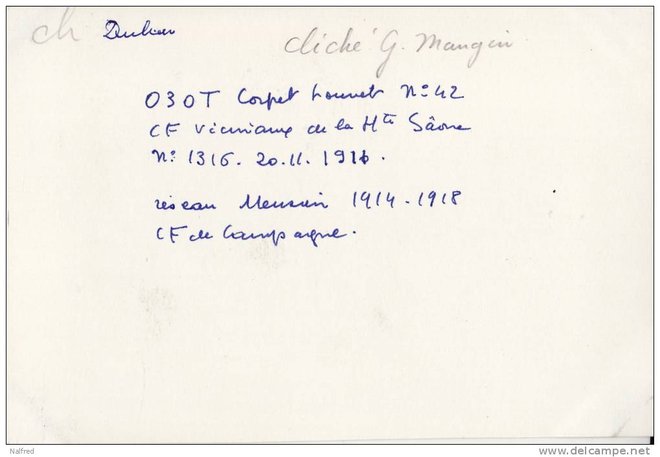 ch
cliché G. Mangin
030T Corpet Louvet N° 42
CF Vicinaux de la Hte Sâone
N° 1316. 20.11. 1916.
réseau Meusien 1914-1918
CF de Campagne.
Nalfred
delcampe.net